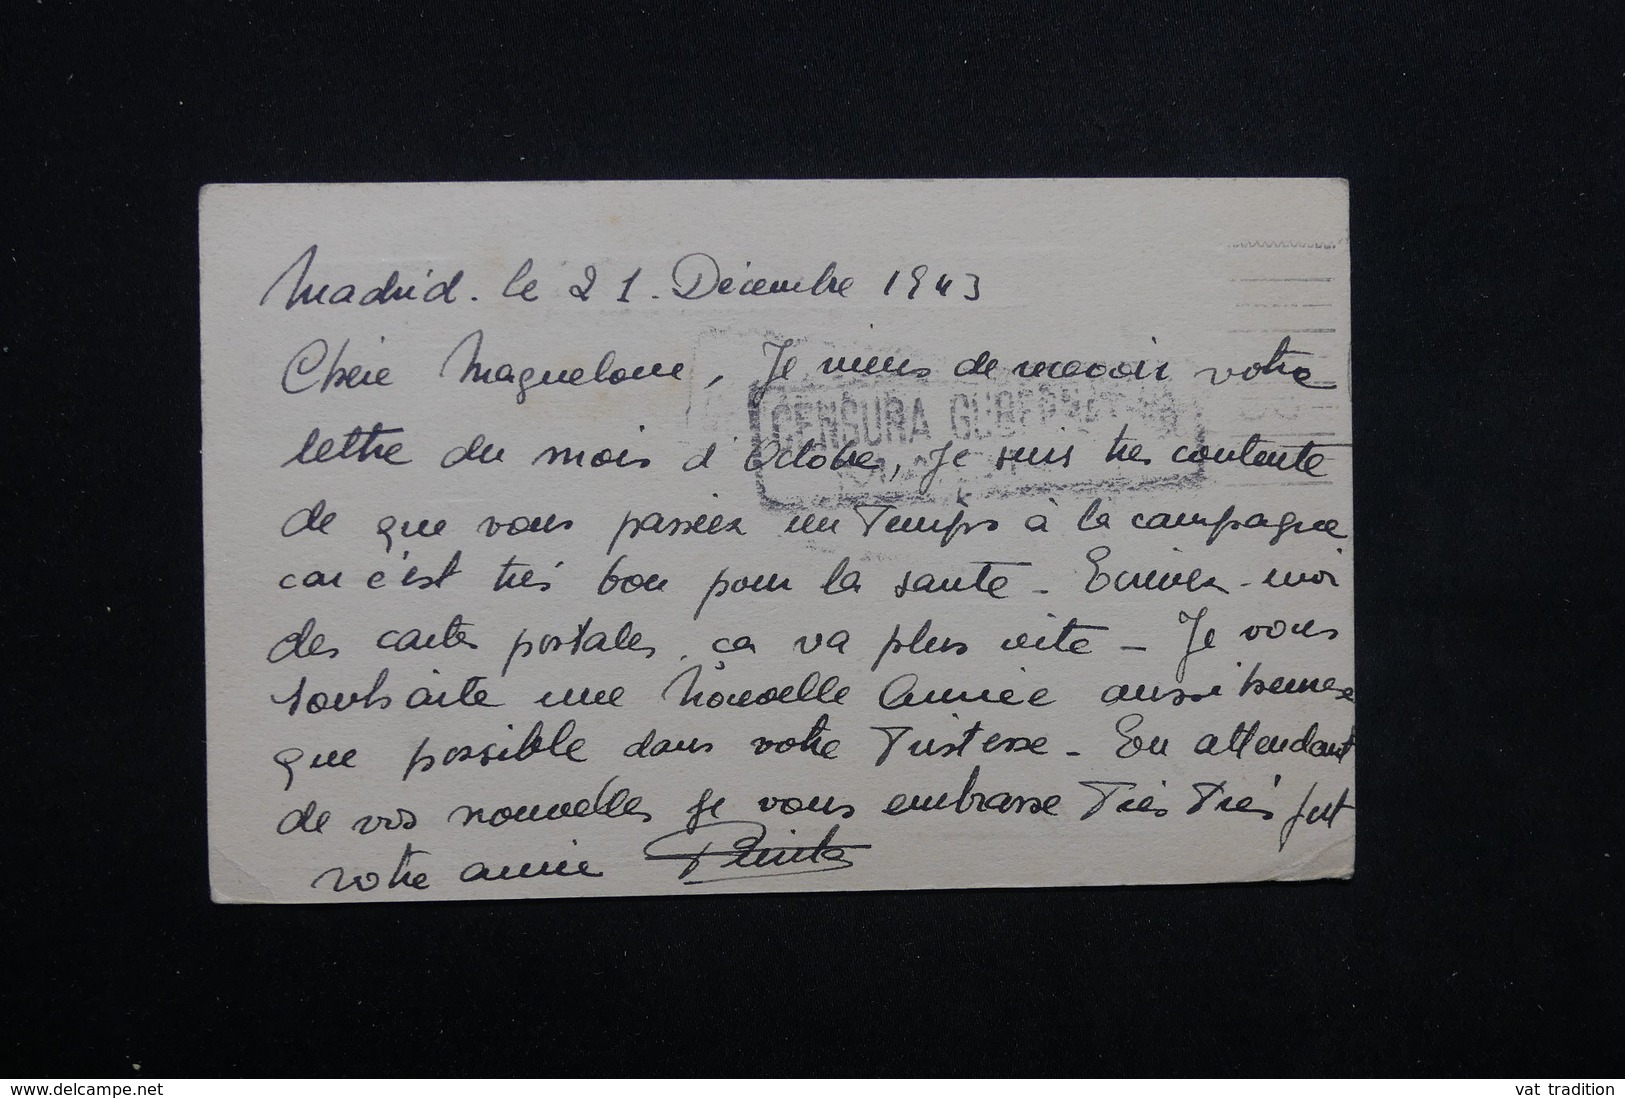 Madrid. le 21. Décembre 1943
Chère Maguelone, Je viens de recevoir votre
lettre du mois d'Octobre, je suis très contente
de que vous passiez un Temps à la campagne
car c'est très bon pour la santé - Ecrivez-moi
des cartes postales, ça va plus vite - Je vous
souhaite une Nouvelle Année aussi bonne
que possible dans votre Tristesse - En attendant
de vos nouvelles je vous embrasse Très Très fort
votre amie
CENSURA GUBERNATIVA
delcampe.net
vat tradition